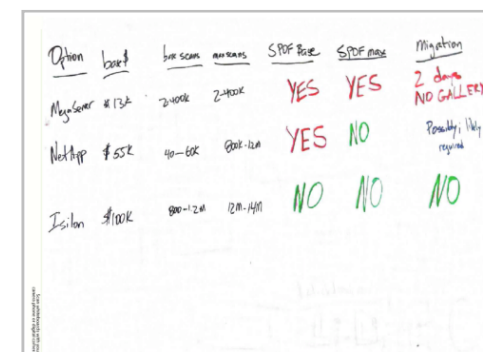 Option box$ box scans max scans SPOF Base SPOF max Migration
MegaServer $13k 2-400k 2-400k YES YES 2 days
NO GALLERY
NetApp $55k 40-60k 800k-1.2m YES NO Possibly; likely
required
Isilon $100k 800-1.2M 12M-14M NO NO NO